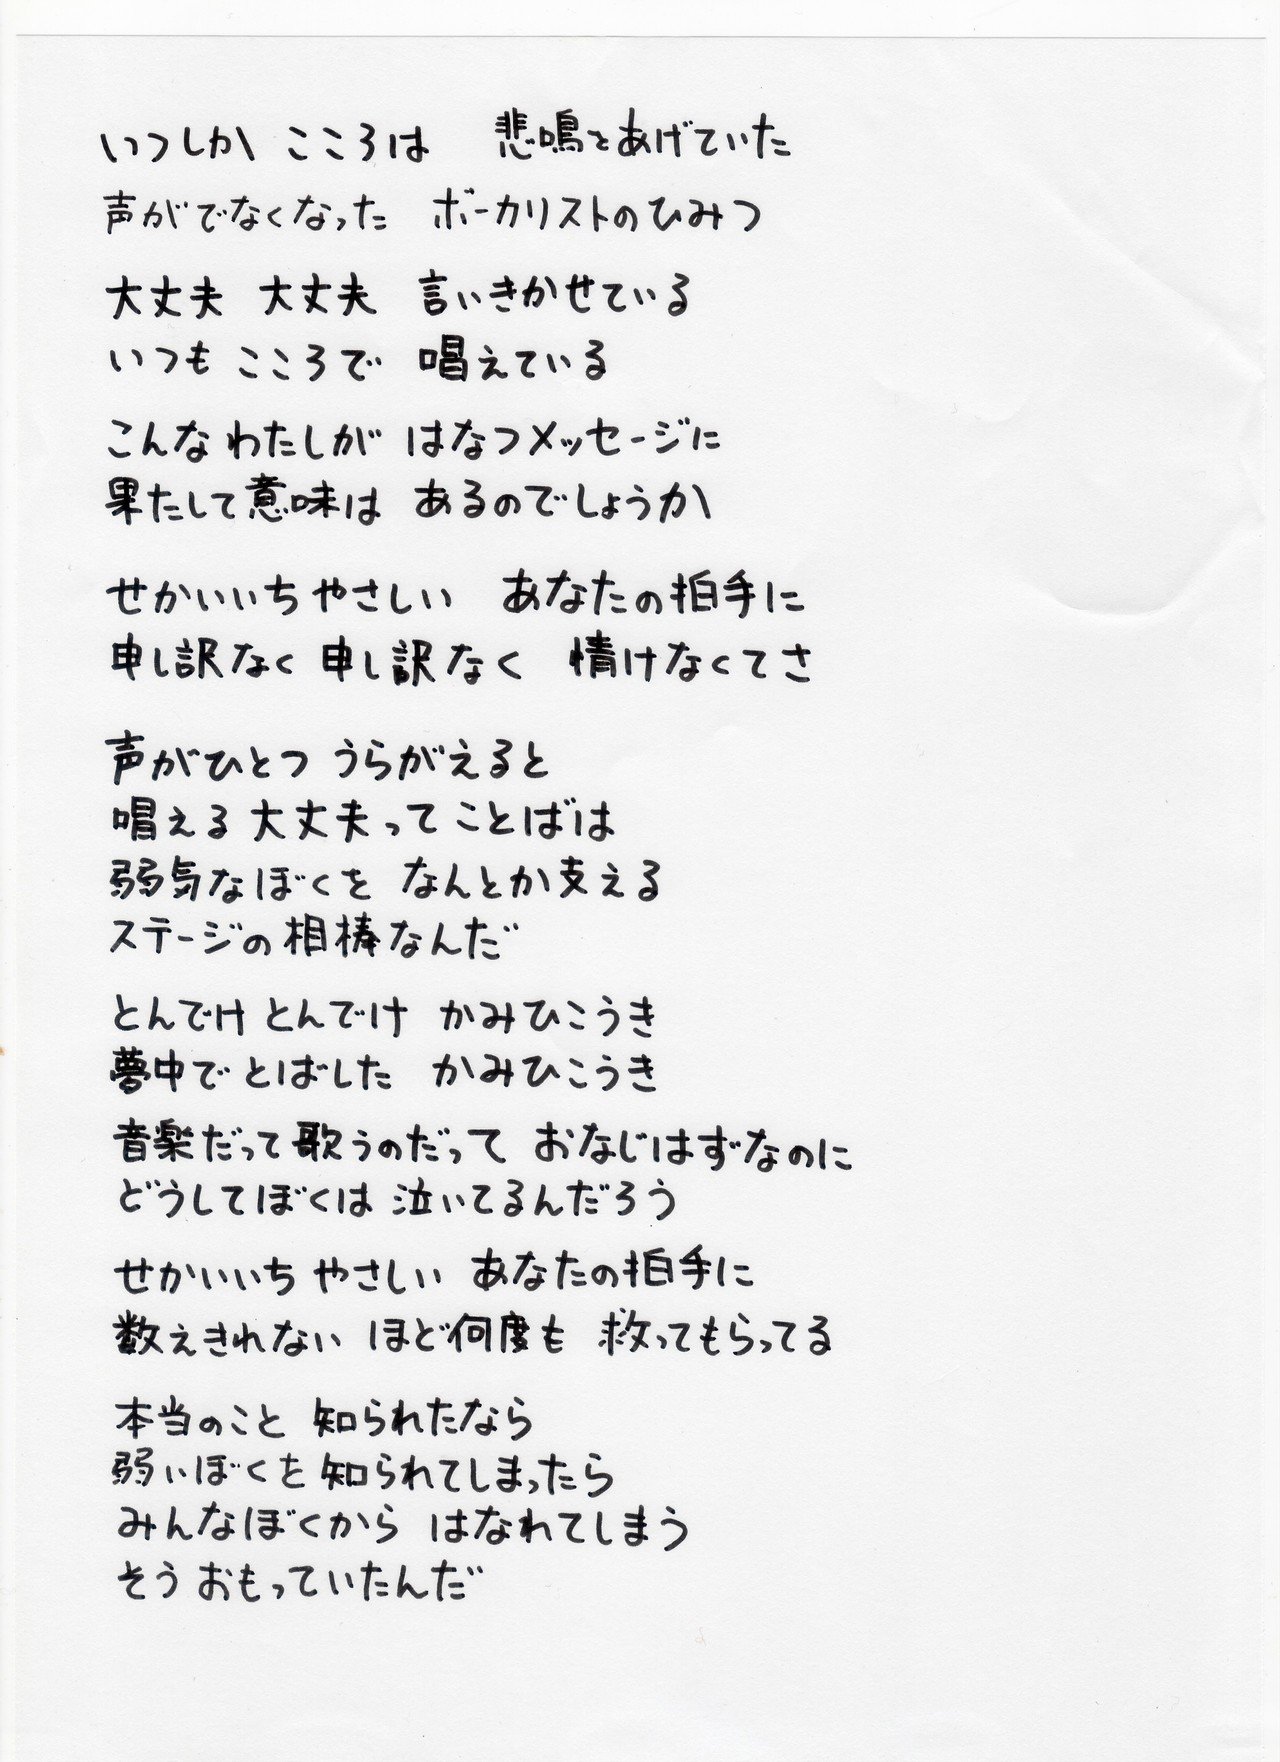 いつしか こころは 悲鳴をあげていた
声がでなくなった ボーカリストのひみつ
大丈夫 大丈夫 言いきかせている
いつも こころで 唱えている
こんな わたしが はなつメッセージに
果たして意味は あるのでしょうか
せかいいち やさしい あなたの拍手に
申し訳なく 申し訳なく 情けなくてさ
声がひとつ うらがえると
唱える 大丈夫って ことばは
弱気なぼくを なんとか支える
ステージの相棒なんだ
とんでけ とんでけ かみひこうき
夢中で とばした かみひこうき
音楽だって 歌うのだって おなじはずなのに
どうしてぼくは 泣いてるんだろう
せかいいち やさしい あなたの拍手に
数えきれない ほど何度も 救ってもらってる
本当のこと 知られたなら
弱いぼくを 知られてしまったら
みんなぼくから はなれてしまう
そう おもっていたんだ